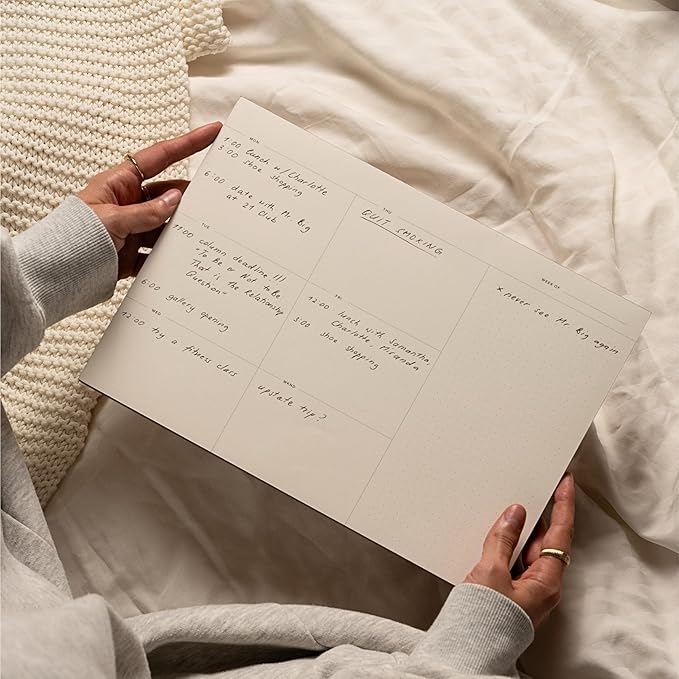 MON
1:00 lunch w/ Charlotte
3:00 shoe shopping
6:00 date with Mr. Big
at 21 Club
TUE
11:00 column deadline !!!
"To Be or Not to Be
That is the Relationship
Question"
6:00 gallery opening
WED
12:00 try a fitness class
THU
QUIT SMOKING
FRI
12:00 lunch with Samantha,
Charlotte, Miranda
3:00 shoe shopping
WKND
upstate trip?
WEEK OF
x never see Mr. Big again